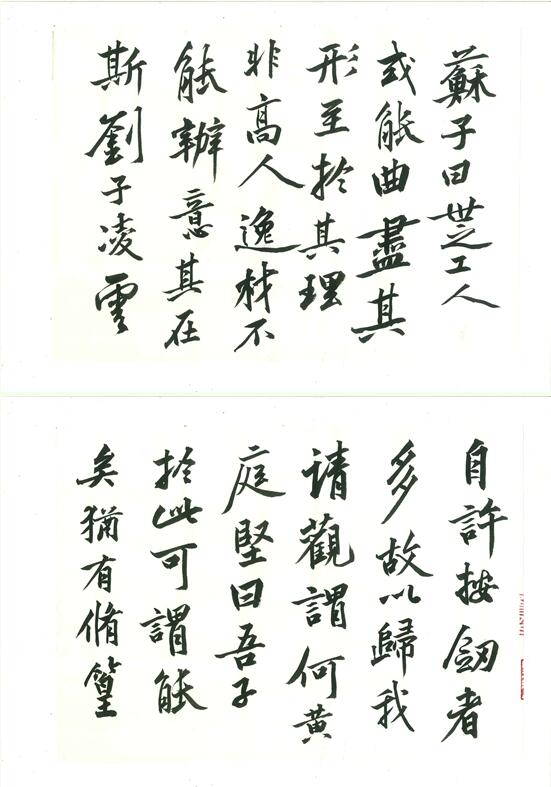 蘇子曰世之工人
或能曲盡其
形至於其理
非高人逸材不
能辦意其在
斯劉子凌雲
自許按劒者
多故以歸我
請觀謂何黃
庭堅曰吾子
於此可謂能
矣猶有脩篁